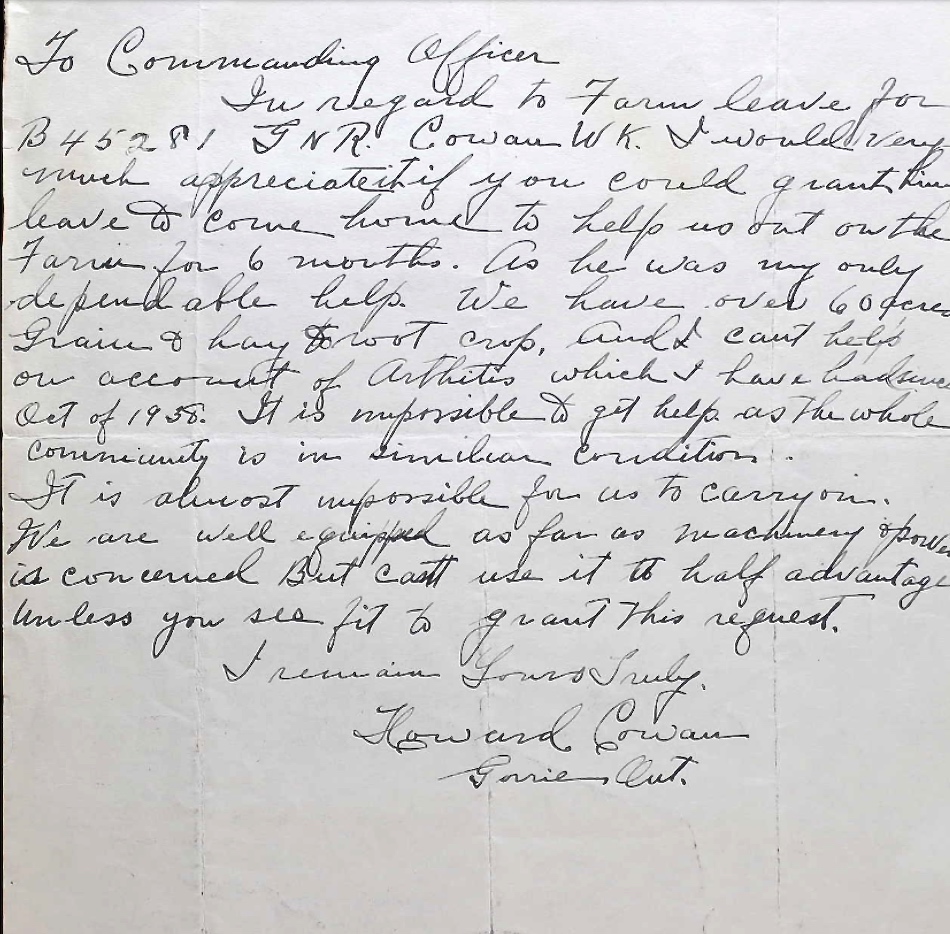 To Commanding Officer
In regard to Farm leave for
B45281 GNR. Cowan WK. I would very
much appreciate it if you could grant him
leave to come home to help us out on the
Farm for 6 months. As he was my only
dependable help. We have over 60 acres
Grain & hay & root crop, and I cant help
on account of Arthitis which I have had since
Oct of 1938. It is impossible to get help as the whole
community is in similiar condition.
It is almost impossible for us to carry on.
We are well equipped as far as machinery & power
is concerned But cant use it to half advantage
Unless you see fit to grant this request.
I remain Yours Truly.
Howard Cowan
Gorrie Ont.